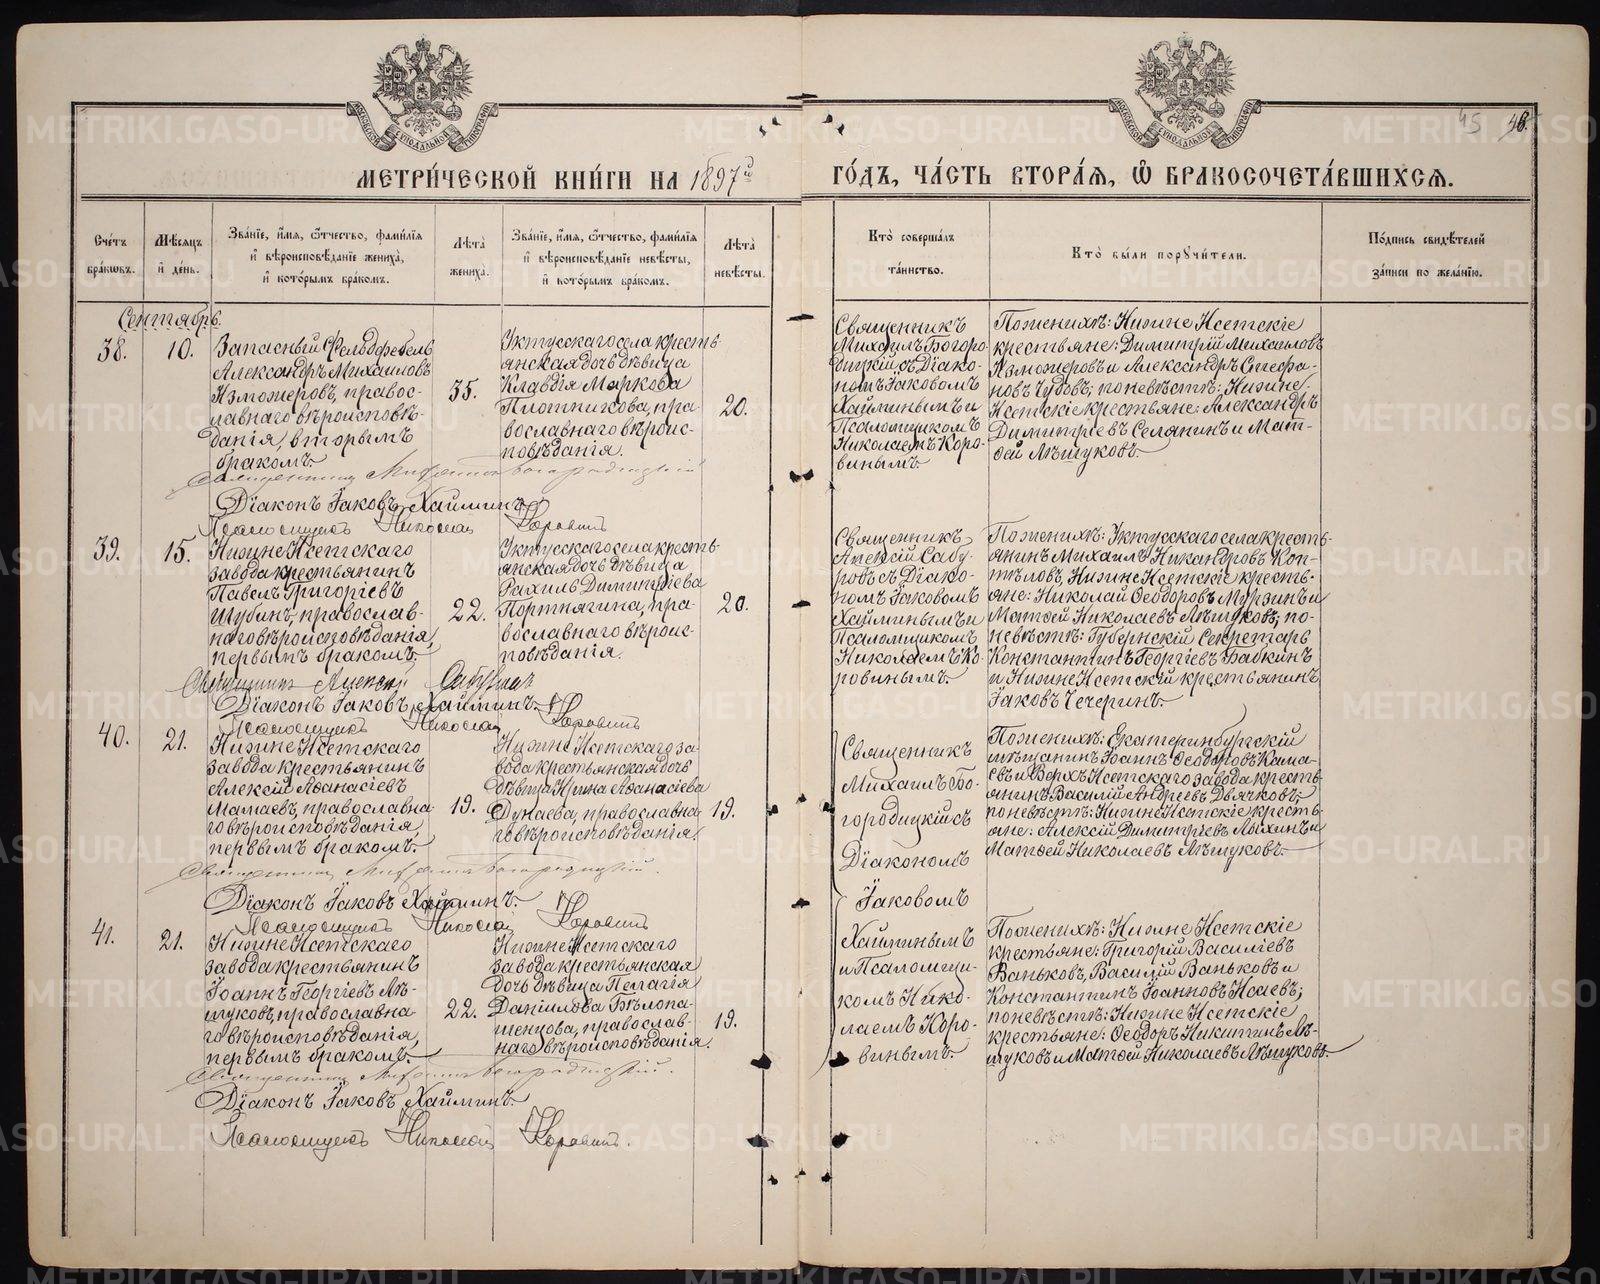 45 46.
МЕТРИ́ЧЕСКОЙ КНИ́ГИ НА 1897й ГО́ДЪ, ЧА́СТЬ ВТОРА́Я, Ѿ БРАКОСОЧЕТА́ВШИХСЯ.
Сче́тъ бра́кѡвъ.
Мѣ́сяцъ и҆ де́нь.
Зва́нїе, и҆́мя, ѻ҆́тчество, фами́лїя
и҆ вѣроисповѣ́данїе жениха̀,
и҆ кото́рымъ бра́комъ.
Лѣта̀ жениха̀.
Зва́нїе, и҆́мя, ѻ҆́тчество, фами́лїя
и҆ вѣроисповѣ́данїе невѣ́сты,
и҆ кото́рымъ бра́комъ.
Лѣта̀ невѣ́сты.
Кто̀ соверша́лъ
та́инство.
Кто̀ бы́ли порꙋчи́тели.
По́дпись свидѣ́телей
за́писи по жела́нїю.
Сентябрь.
38.
10.
Запасный Фельдфебель
Александръ Михаиловъ
Изможеровъ, правос-
лавнаго вѣроисповѣ-
данія, вторымъ
бракомъ.
35.
Уктусскаго села кресть-
янская дочь дѣвица
Клавдія Маркова
Плотникова, пра-
вославнаго вѣроис-
повѣданія.
20.
Священникъ
Михаилъ Богоро-
дицкій съ Діако-
номъ Іаковомъ
Хайминымъ и
Псаломщикомъ
Николаемъ Коро-
винымъ.
По женихѣ: Нижне Исетскіе
крестьяне: Димитрій Михаиловъ
Изможеровъ и Александръ Стефа-
новъ Чудовъ; по невѣстѣ: Нижне-
Исетскіе крестьяне: Александръ
Димитріевъ Селянинъ и Мат-
ѳей Лѣшуковъ.
Священникъ Михаилъ Богородицкій
Діаконъ Іаковъ Хайминъ.
Псаломщикъ Николай Коровинъ
39.
15.
Нижне Исетскаго
завода крестьянинъ
Павелъ Григоріевъ
Шубинъ, православ-
наго вѣроисповѣданія,
первымъ бракомъ.
22.
Уктусскаго села кресть-
янская дочь дѣвица
Рахиль Димитріева
Портнягина, пра-
вославнаго вѣроис-
повѣданія.
20.
Священникъ
Алексій Сабу-
ровъ съ Діако-
номъ Іаковомъ
Хайминымъ и
Псаломщикомъ
Николаемъ Ко-
ровинымъ.
По женихѣ: Уктусскаго села кресть-
янинъ Михаилъ Никандровъ Коп-
тѣловъ, Нижне Исетскіе кресть-
яне: Николай Ѳеодоровъ Мурзинъ и
Матѳей Николаевъ Лѣшуковъ; по-
невѣстѣ: Губернскій Секретарь
Константинъ Георгіевъ Бабкинъ
и Нижне Исетскій крестьянинъ
Іаковъ Чечеринъ.
Священникъ Алексій Сабуровъ
Діаконъ Іаковъ Хайминъ.
Псаломщикъ Николай Коровинъ
40.
21.
Нижне Исетскаго
завода крестьянинъ
Алексій Аѳанасіевъ
Мамаевъ, православна-
го вѣроисповѣданія,
первымъ бракомъ.
19.
Нижне Исетскаго за-
вода крестьянская дочь
дѣвица Ирина Аѳанасіева
Дунаева, православна-
го вѣроисповѣданія.
19.
Священникъ
Михаилъ Бо-
городицкій съ
Діакономъ
Іаковомъ
Хайминымъ
и Псаломщи-
комъ Нико-
лаемъ Коро-
винымъ.
По женихѣ: Екатеринбургскій
мѣщанинъ Іоаннъ Ѳеодоровъ Кама-
евъ и Верхъ Исетскаго завода кресть-
янинъ Василій Андреевъ Двячковъ;
по невѣстѣ: Нижне Исетскіе кресть-
яне: Алексій Димитріевъ Лыхинъ и
Матѳей Николаевъ Лѣшуковъ.
Священникъ Михаилъ Богородицкій.
Діаконъ Іаковъ Хайминъ.
Псаломщикъ Николай Коровинъ
41.
21.
Нижне Исетскаго
завода крестьянинъ
Іоаннъ Георгіевъ Лѣ-
шуковъ, православна-
го вѣроисповѣданія,
первымъ бракомъ.
22.
Нижне Исетскаго
завода крестьянская
дочь дѣвица Пелагія
Даніилова Бѣлопа-
шенцова, православ-
наго вѣроисповѣданія.
19.
По женихѣ: Нижне Исетскіе
крестьяне: Григорій Василіевъ
Ваньковъ, Василій Ваньковъ и
Константинъ Іоанновъ Исаевъ;
по невѣстѣ: Нижне Исетскіе
крестьяне: Ѳеодоръ Никитинъ Лѣ-
шуковъ и Матѳей Николаевъ Лѣшуковъ.
Священникъ Михаилъ Богородицкій.
Діаконъ Іаковъ Хайминъ.
Псаломщикъ Николай Коровинъ.
METRIKI.GASO-URAL.RU